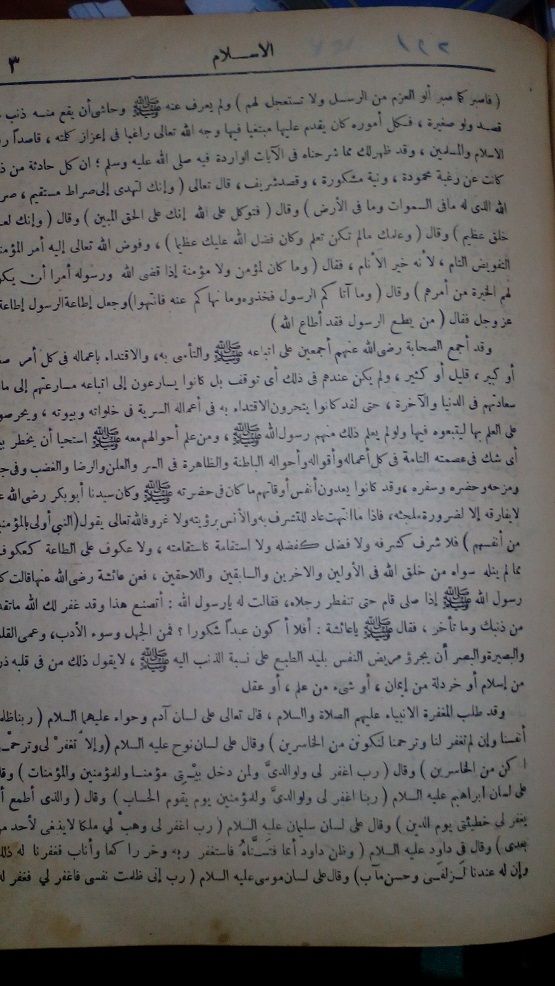 ٣ الاسلام ١٩٢
( فاصبر كما صبر أولو العزم من الرسل ولا تستعجل لهم ) ولم يعرف عنه ﷺ وحاشى أن يقع منه ذنب
قصد ولو صغيرة ، فكل أموره كان يقدم عليها مبتغيا فيها وجه الله تعالى راغبا فى إعزاز كلمته ، قاصدا
الاسلام والمسلمين ، وقد ظهر لك مما شرحناه فى الآيات الواردة فيه صلى الله عليه وسلم ؛ ان كل حادثة من
كانت عن رغبة محمودة ، ونية مشكورة ، وقصد شريف ، قال تعالى ( وإنك لتهدى إلى صراط مستقيم ،
الله الذى له مافى السموات وما فى الأرض ) وقال ( فتوكل على الله إنك على الحق المبين ) وقال ( وإنك
خلق عظيم ) وقال ( وعلمك مالم تكن تعلم وكان فضل الله عليك عظيما ) ، وفوض الله تعالى إليه أمر
التفويض التام ، لأنه خير الأنام ، فقال ( وما كان لمؤمن ولا مؤمنة إذا قضى الله ورسوله أمرا أن
لهم الخيرة من أمرهم ) وقال ( وما آتاكم الرسول فخذوه وما نهاكم عنه فانتهوا) وجعل إطاعة الرسول
عز وجل فقال ( من يطع الرسول فقد أطاع الله )
وقد أجمع الصحابة رضى الله عنهم أجمعين على اتباعه ﷺ والتأسى به، والاقتداء بأعماله فى كل أمر
أو كبير ، قليل أو كثير ، ولم يكن عندهم فى ذلك أى توقف بل كانوا يسارعون إلى اتباعه مسارعتهم إلى
سعادتهم فى الدنيا والآخرة ، حتى لقد كانوا يتحرون الاقتداء به فى أعماله السرية فى خلواته وبيوته ،
على العلم بها ليتبعوه فيها ولو لم يعلم ذلك منهم رسول الله ﷺ ، ومن علم أحوالهم معه ﷺ استحيا أن يخطر
أى شك فى عصمته التامة فى كل أعماله وأقواله وأحواله الباطنة والظاهرة فى السر والعلن والرضا والغضب وفى
ومزحه وحضره وسفره ، وقد كانوا يعدون أنفس أوقاتهم ما كان فى حضرته ﷺ وكان سيدنا أبوبكر رضى الله
لايفارقه إلا لضرورة ملجئة، فاذا ما انتهت عاد للتشرف به والأنس برؤيته ولا غرو فالله تعالى يقول (النبى أولى
من أنفسهم ) فلا شرف كشرفه ولا فضل كفضله ولا استقامة كاستقامته ، ولا عكوف على الطاعة
مما لم ينله سواه من خلق الله فى الأولين والاخرين والسابقين واللاحقين ، فعن عائشة رضى الله عنها قالت
رسول الله ﷺ إذا صلى قام حتى تنفطر رجلاه، فقالت له يارسول الله : أتصنع هذا وقد غفر لك الله
من ذنبك وما تأخر ، فقال ﷺ ياعائشة : أفلا أكون عبدا شكورا ؟ فمن الجهل وسوء الأدب، وعمى
والبصيرة والبصر أن يجرؤ مريض النفس بليد الطبع على نسبة الذنب اليه ﷺ ، لايقول ذلك من فى قلبه
من إسلام أو خردلة من إيمان ، أو شىء من علم ، أو عقل
وقد طلب المغفرة الانبياء عليهم الصلاة والسلام ، قال تعالى على لسان آدم وحواء عليهما السلام ( ربنا
أنفسنا وإن لم تغفر لنا وترحمنا لنكونن من الخاسرين ) وقال على لسان نوح عليه السلام (وإلا تغفر لى
أكن من الخاسرين ) وقال ( رب اغفر لى ولوالدىّ ولمن دخل بيتى مؤمنا وللمؤمنين والمؤمنات )
على لسان ابراهيم عليه السلام ( ربنا اغفر لى ولوالدىّ وللمؤمنين يوم يقوم الحساب ) وقال ( والذى أطمع
يغفر لى خطيئتى يوم الدين ) وقال على لسان سليمان عليه السلام ( رب اغفر لى وهب لى ملكا لا ينبغى لأحد
بعدى ) وقال فى داود عليه السلام ( وظن داود أنما فتنّاه فاستغفر ربه وخر راكعا وأناب فغفرنا له
وإن له عندنا لزلفى وحسن مآب) وقال على لسان موسى عليه السلام ( رب إنى ظلمت نفسى فاغفر لى فغفر